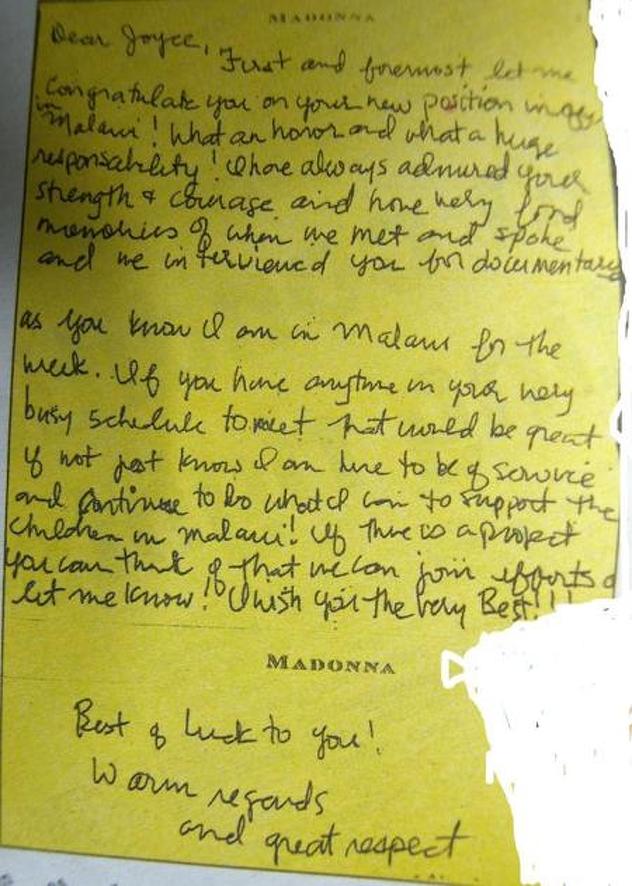 MADONNA
Dear Joyce,
First and foremost let me
Congratulate you on your new position in
in
Malawi! What an honor and what a huge
responsability! I have always admired your
strength & courage and have very fond
memories of when we met and spoke
and we interviewed you for documentary
as you know I am in Malawi for the
week. If you have anytime in your very
busy schedule to meet that would be great
if not just know I am here to be of service
and continue to do what I can to support the
children in malawi! If there is a project
you can think of that we can join efforts
let me know! I wish you the very Best!!!
MADONNA
Best of luck to you!
Warm regards
and great respect